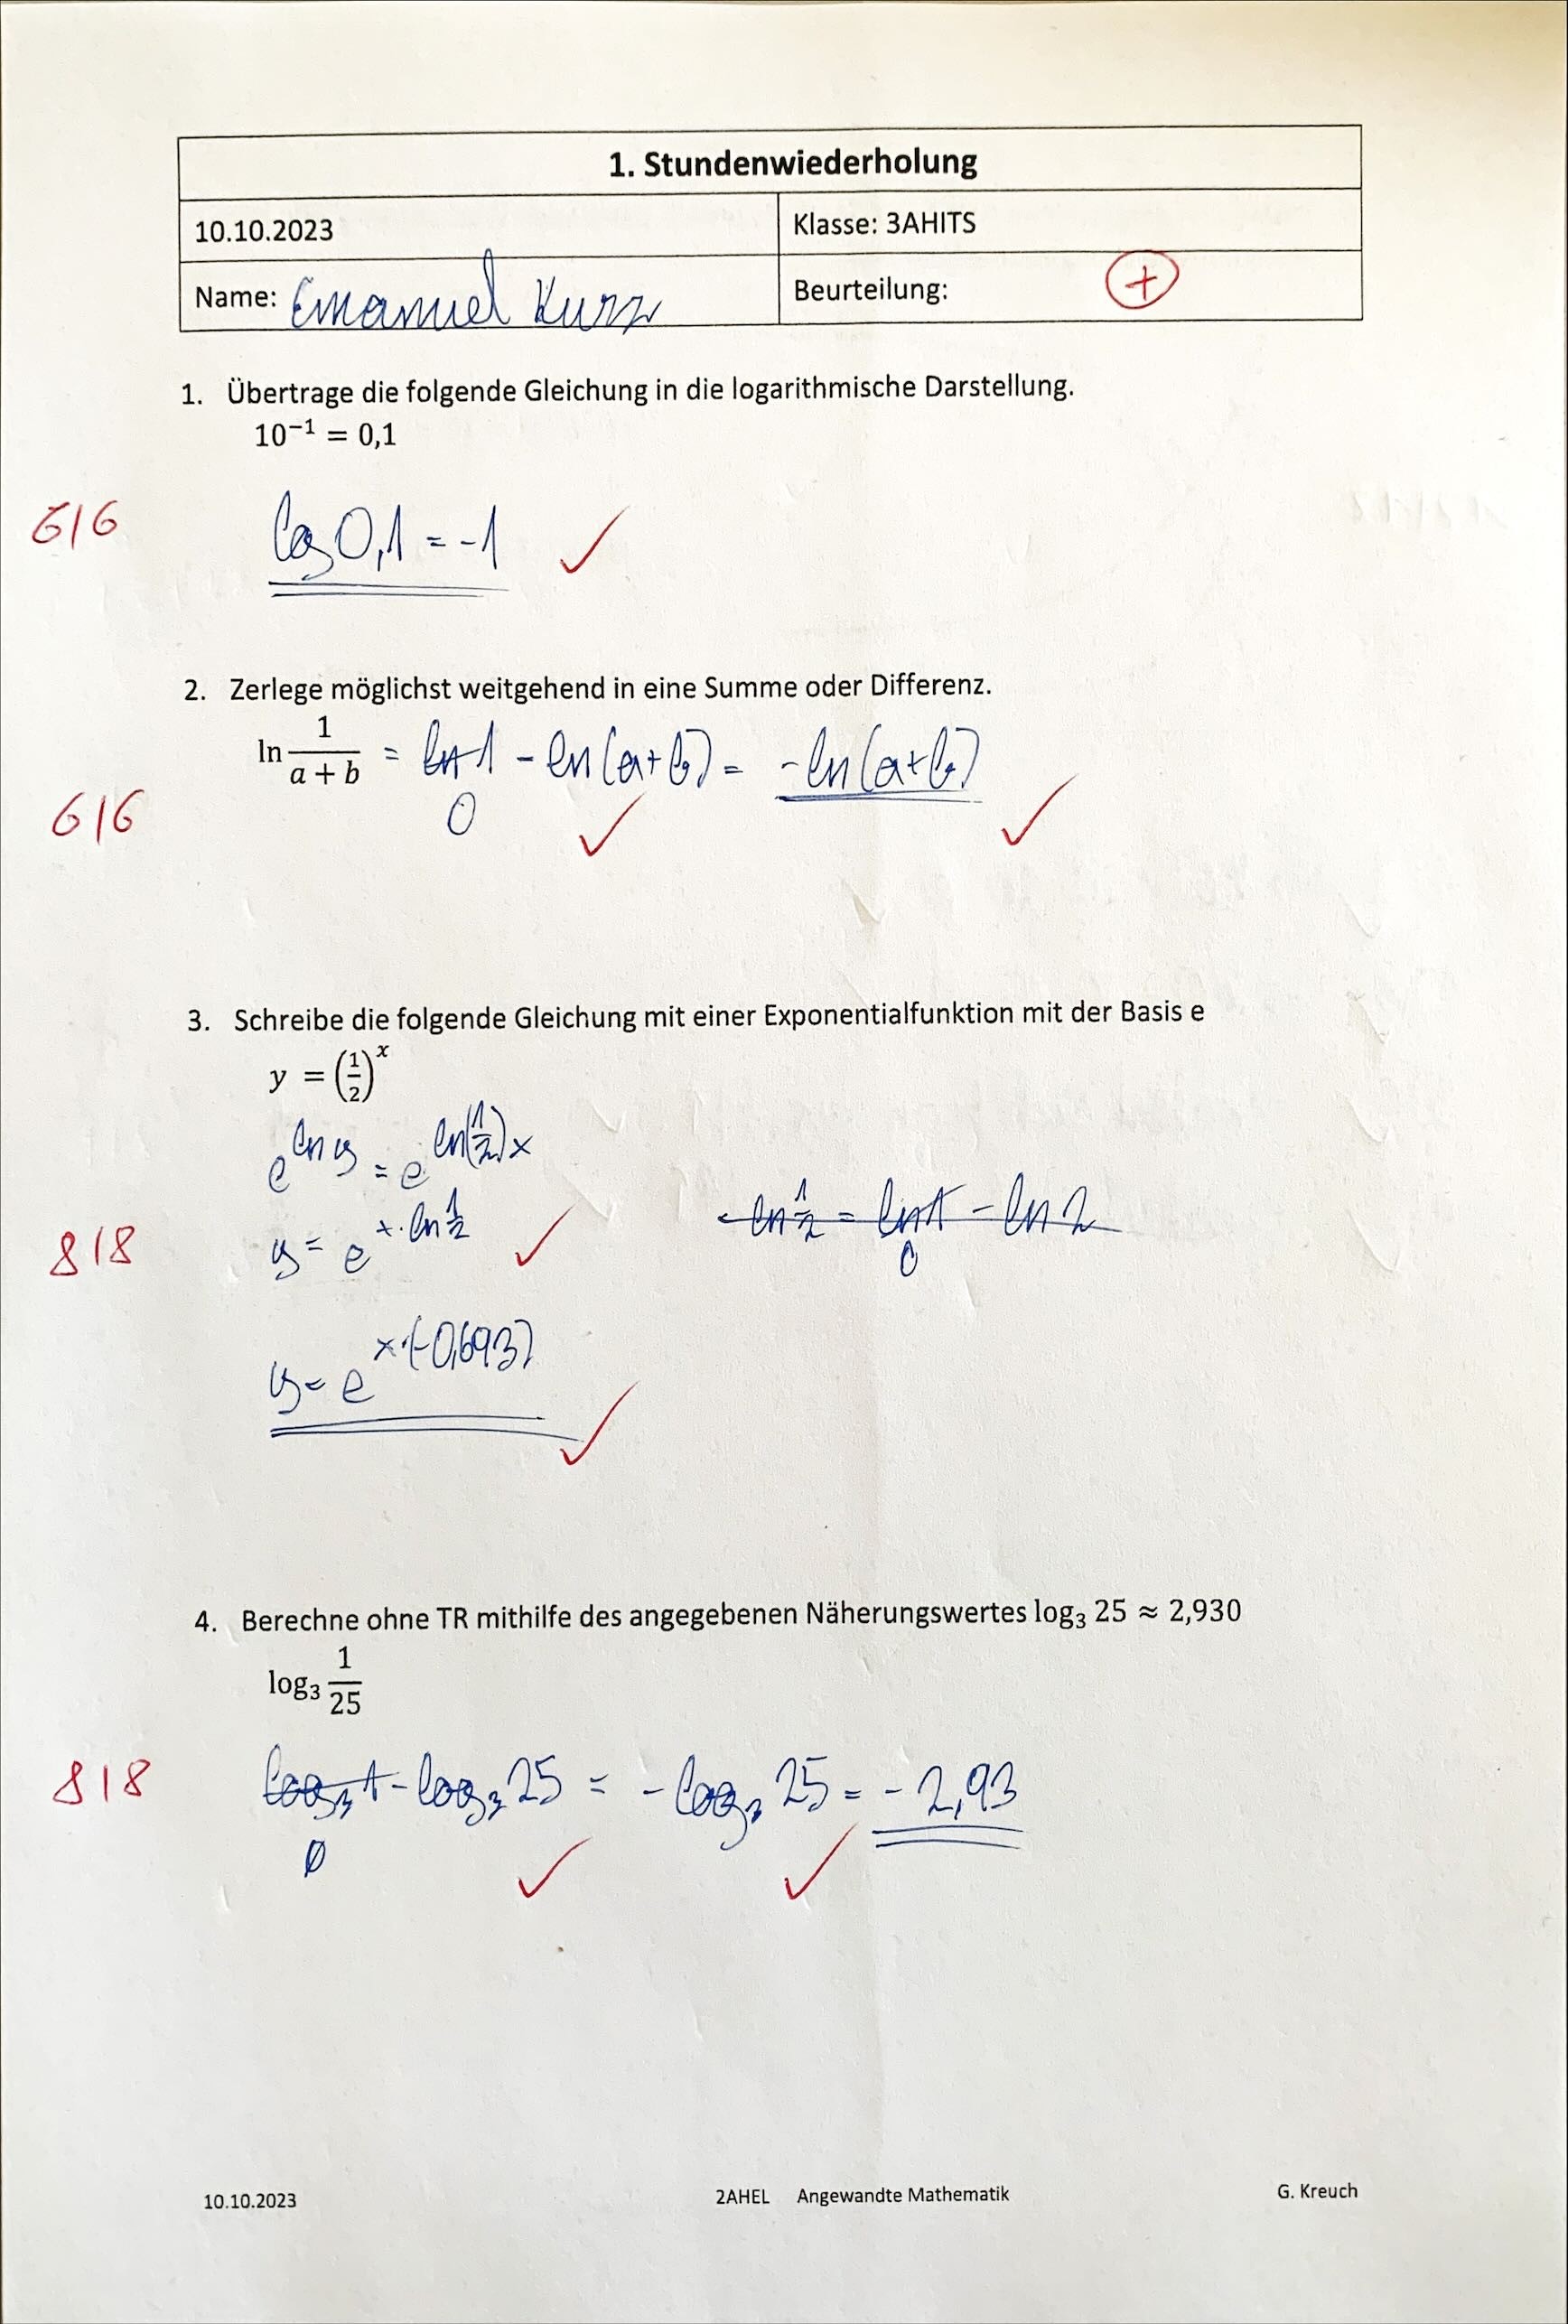 1. Stundenwiederholung
10.10.2023 Klasse: 3AHITS
Name: Emanuel Kurz Beurteilung: +
1. Übertrage die folgende Gleichung in die logarithmische Darstellung.
10⁻¹ = 0,1
6/6
log 0,1 = -1 ✓
2. Zerlege möglichst weitgehend in eine Summe oder Differenz.
ln 1/(a + b) = ln 1 - ln(a+b) = -ln(a+b)
0 ✓ ✓
6/6
3. Schreibe die folgende Gleichung mit einer Exponentialfunktion mit der Basis e
y = (1/2)^x
e^(ln y) = e^(ln(1/2)x)
y = e^(x·ln 1/2) ✓
ln 1/2 = ln 1 - ln 2
0
8/8
y = e^(x·(-0,693)) ✓
4. Berechne ohne TR mithilfe des angegebenen Näherungswertes log₃ 25 ≈ 2,930
log₃ 1/25
8/8
log₃ 1 - log₃ 25 = - log₃ 25 = - 2,93
0 ✓ ✓
10.10.2023 2AHEL Angewandte Mathematik G. Kreuch